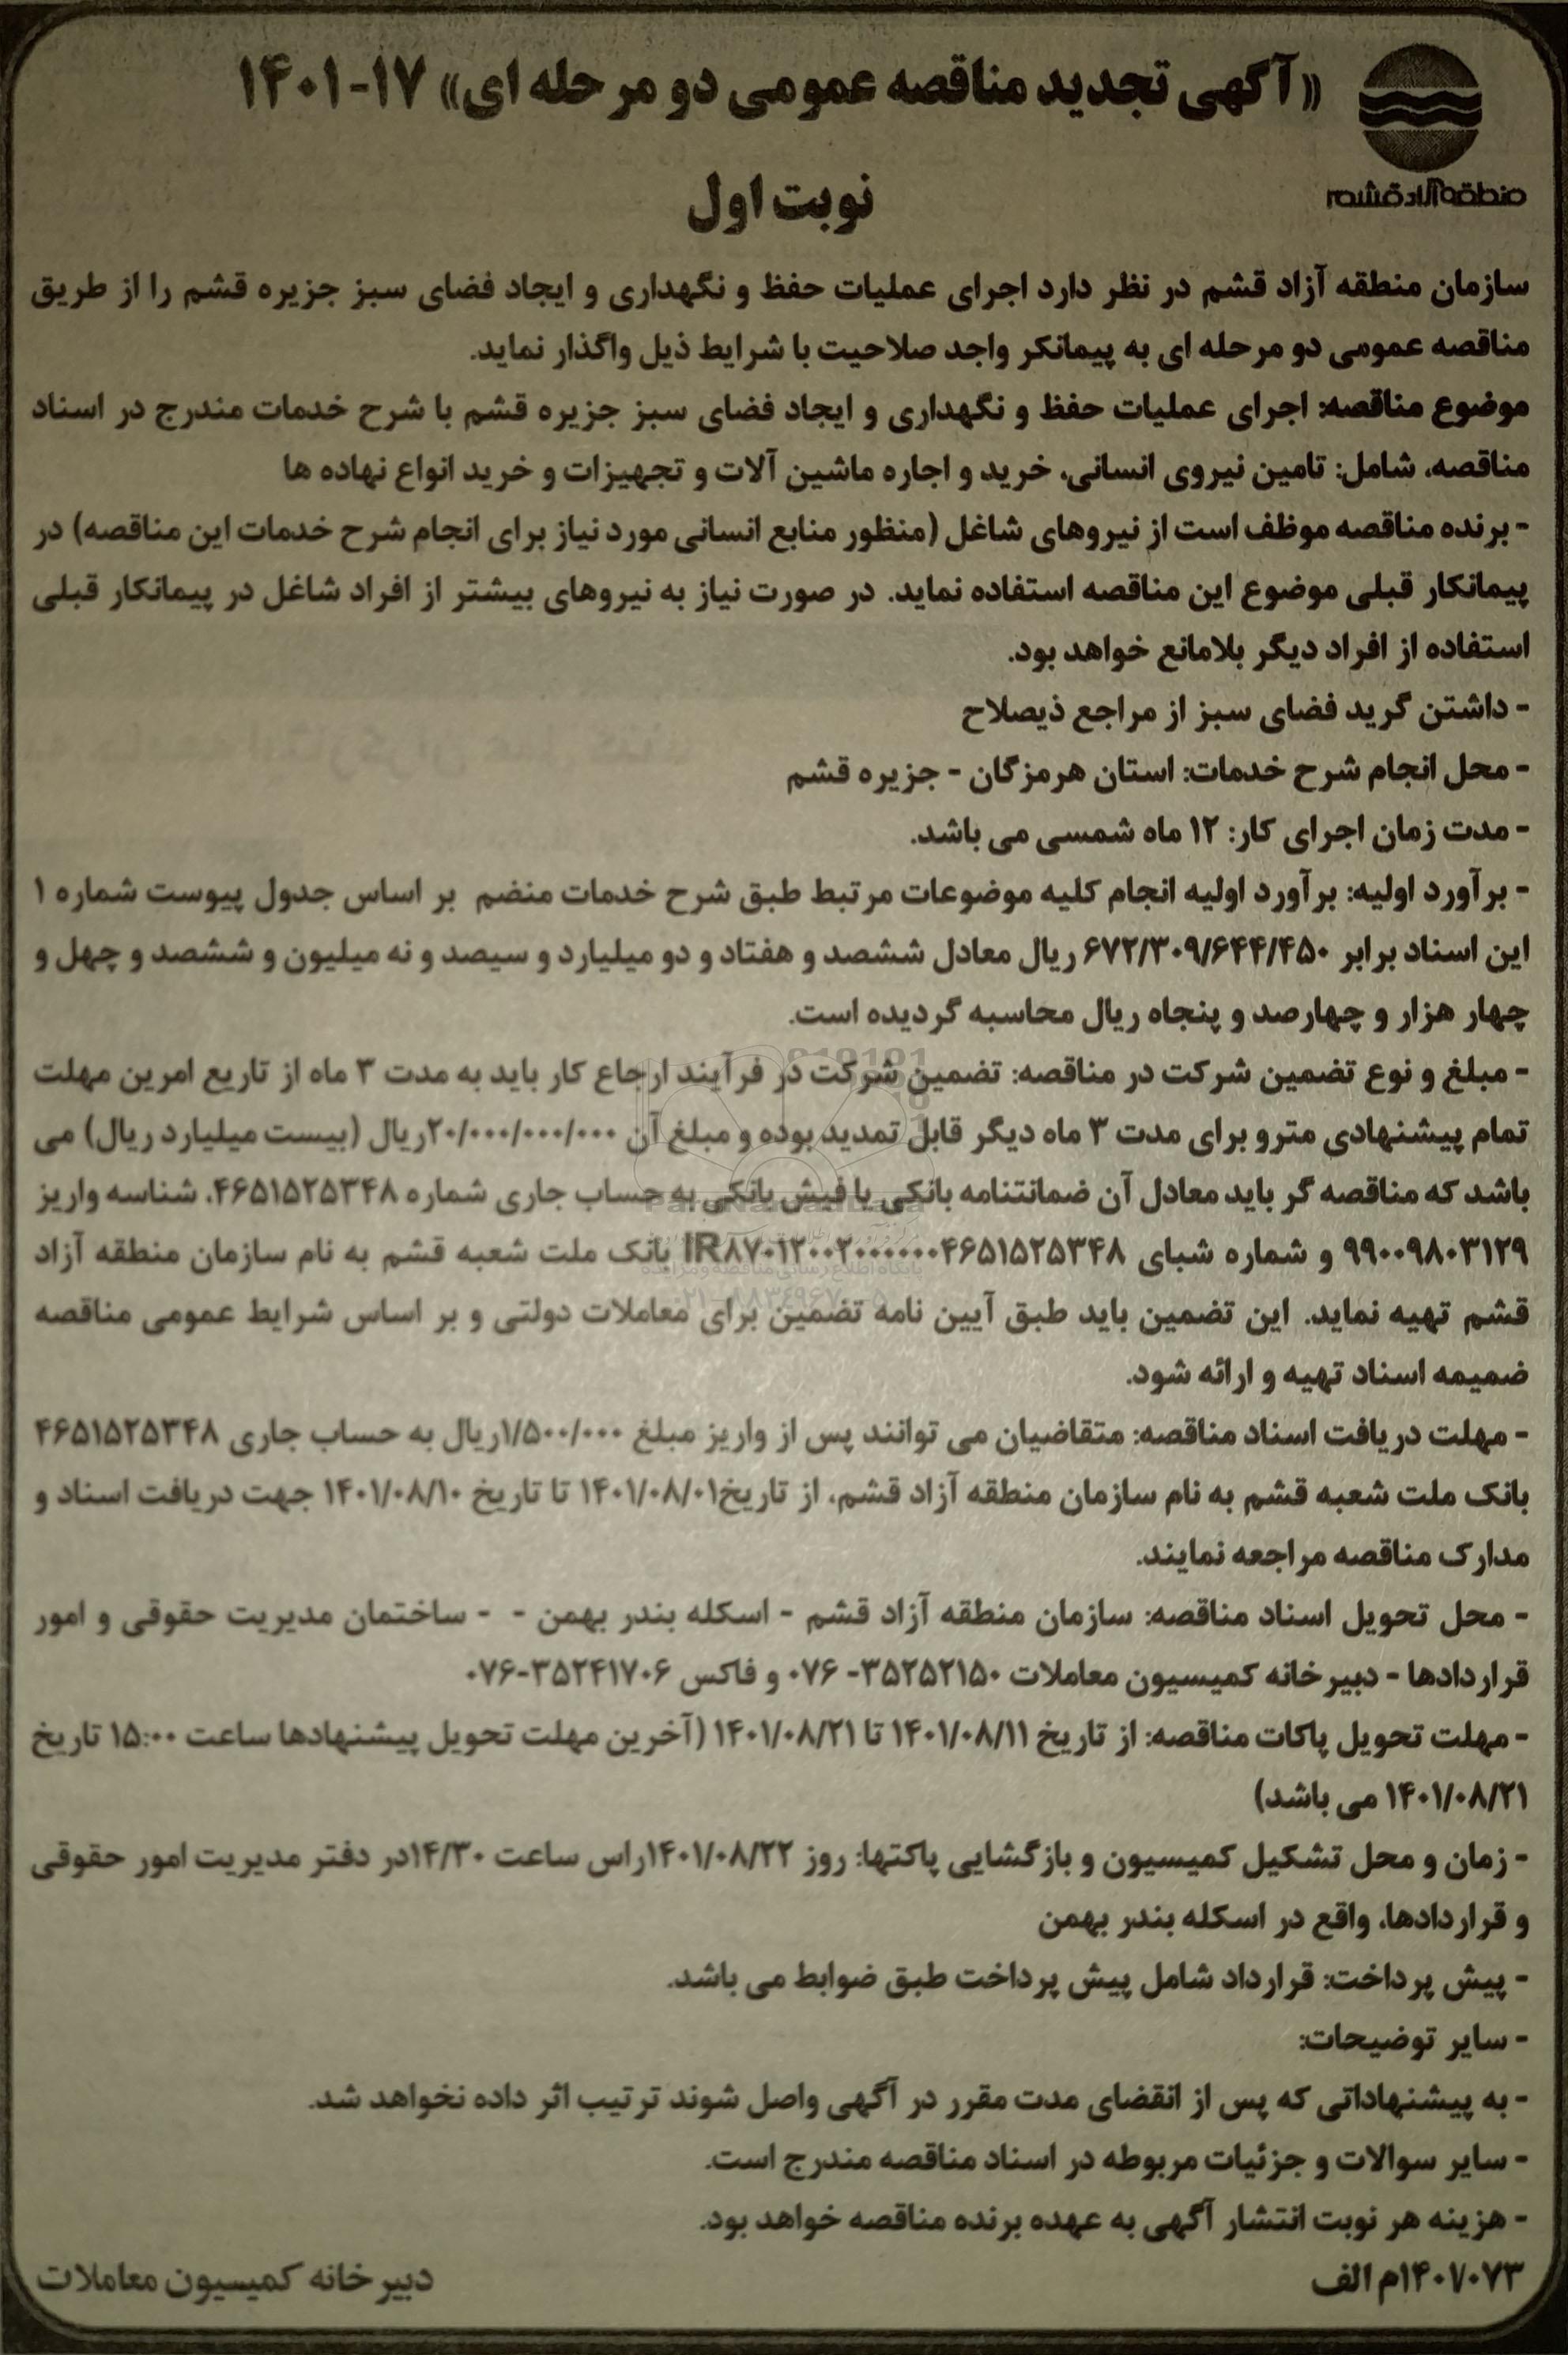 «آگهی تجدید مناقصه عمومی دو مرحله ای» ۱۷-۱۴۰۱
منطقه آزاد قشم
نوبت اول
سازمان منطقه آزاد قشم در نظر دارد اجرای عملیات حفظ و نگهداری و ایجاد فضای سبز جزیره قشم را از طریق
مناقصه عمومی دو مرحله ای به پیمانکر واجد صلاحیت با شرایط ذیل واگذار نماید.
موضوع مناقصه: اجرای عملیات حفظ و نگهداری و ایجاد فضای سبز جزیره قشم با شرح خدمات مندرج در اسناد
مناقصه، شامل: تامین نیروی انسانی، خرید و اجاره ماشین آلات و تجهیزات و خرید انواع نهاده ها
- برنده مناقصه موظف است از نیروهای شاغل (منظور منابع انسانی مورد نیاز برای انجام شرح خدمات این مناقصه) در
پیمانکار قبلی موضوع این مناقصه استفاده نماید. در صورت نیاز به نیروهای بیشتر از افراد شاغل در پیمانکار قبلی
استفاده از افراد دیگر بلامانع خواهد بود.
- داشتن گرید فضای سبز از مراجع ذیصلاح
- محل انجام شرح خدمات: استان هرمزگان - جزیره قشم
- مدت زمان اجرای کار: ۱۲ ماه شمسی می باشد.
- برآورد اولیه: برآورد اولیه انجام کلیه موضوعات مرتبط طبق شرح خدمات منضم بر اساس جدول پیوست شماره ۱
این اسناد برابر ۶۷۲/۳۰۹/۶۴۴/۴۵۰ ریال معادل ششصد و هفتاد و دو میلیارد و سیصد و نه میلیون و ششصد و چهل و
چهار هزار و چهارصد و پنجاه ریال محاسبه گردیده است.
- مبلغ و نوع تضمین شرکت در مناقصه: تضمین شرکت در فرآیند ارجاع کار باید به مدت ۳ ماه از تاریع امرین مهلت
تمام پیشنهادی مترو برای مدت ۳ ماه دیگر قابل تمدید بوده و مبلغ آن ۲۰/۰۰۰/۰۰۰/۰۰۰ریال (بیست میلیارد ریال) می
باشد که مناقصه گر باید معادل آن ضمانتنامه بانکی یا فیش بانکی به حساب جاری شماره ۴۶۵۱۵۲۵۳۴۸، شناسه واریز
۹۹۰۰۹۸۰۳۱۲۹ و شماره شبای IR۸۷۰۱۲۰۰۲۰۰۰۰۰۰۴۶۵۱۵۲۵۳۴۸ بانک ملت شعبه قشم به نام سازمان منطقه آزاد
قشم تهیه نماید. این تضمین باید طبق آیین نامه تضمین برای معاملات دولتی و بر اساس شرایط عمومی مناقصه
ضمیمه اسناد تهیه و ارائه شود.
- مهلت دریافت اسناد مناقصه: متقاضیان می توانند پس از واریز مبلغ ۱/۵۰۰/۰۰۰ریال به حساب جاری ۴۶۵۱۵۲۵۳۴۸
بانک ملت شعبه قشم به نام سازمان منطقه آزاد قشم، از تاریخ۱۴۰۱/۰۸/۰۱ تا تاریخ ۱۴۰۱/۰۸/۱۰ جهت دریافت اسناد و
مدارک مناقصه مراجعه نمایند.
- محل تحویل اسناد مناقصه: سازمان منطقه آزاد قشم - اسکله بندر بهمن - - ساختمان مدیریت حقوقی و امور
قراردادها - دبیرخانه کمیسیون معاملات ۳۵۲۵۲۱۵۰- ۰۷۶ و فاکس ۳۵۲۴۱۷۰۶-۰۷۶
- مهلت تحویل پاکات مناقصه: از تاریخ ۱۴۰۱/۰۸/۱۱ تا ۱۴۰۱/۰۸/۲۱ (آخرین مهلت تحویل پیشنهادها ساعت ۱۵:۰۰ تاریخ
۱۴۰۱/۰۸/۲۱ می باشد)
- زمان و محل تشکیل کمیسیون و بازگشایی پاکتها: روز ۱۴۰۱/۰۸/۲۲راس ساعت ۱۴/۳۰در دفتر مدیریت امور حقوقی
و قراردادها، واقع در اسکله بندر بهمن
- پیش پرداخت: قرارداد شامل پیش پرداخت طبق ضوابط می باشد.
- سایر توضیحات:
- به پیشنهاداتی که پس از انقضای مدت مقرر در آگهی واصل شوند ترتیب اثر داده نخواهد شد.
- سایر سوالات و جزئیات مربوطه در اسناد مناقصه مندرج است.
- هزینه هر نوبت انتشار آگهی به عهده برنده مناقصه خواهد بود.
۱۴۰۷۰۷۳م الف
دبیرخانه کمیسیون معاملات